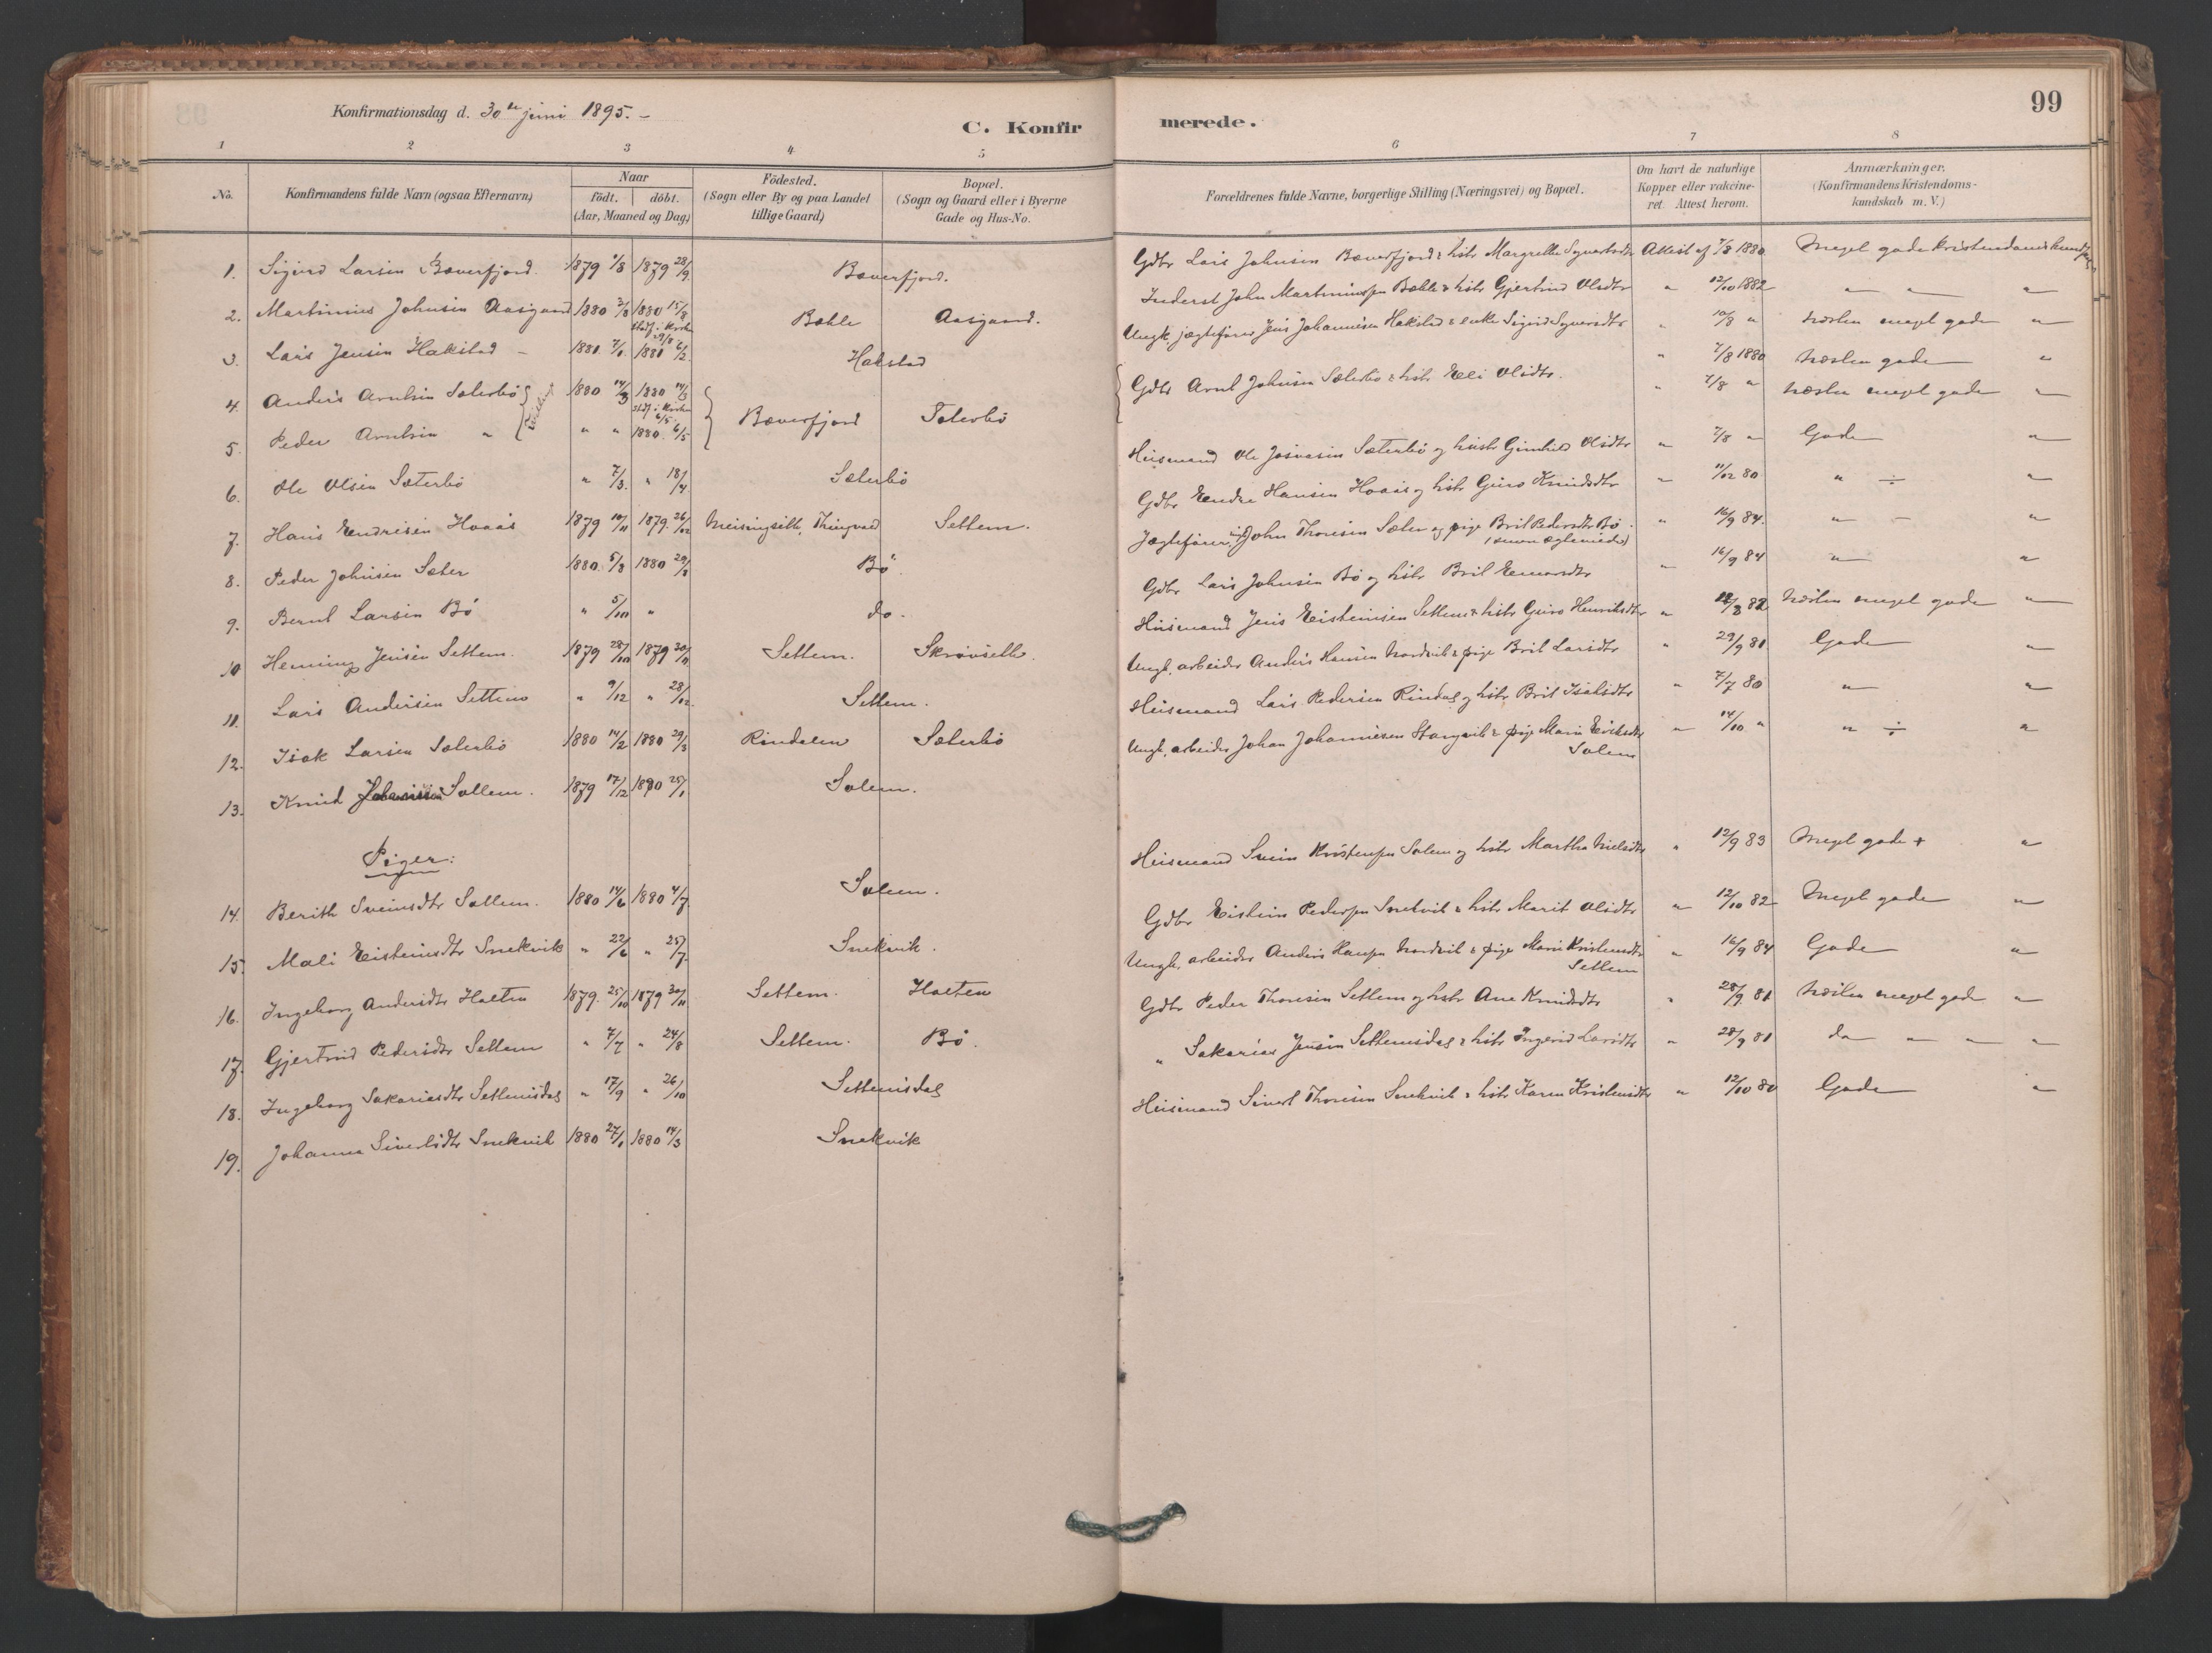 Konfirmationsdag d. 30te juni 1895.-
C. Konfir merede.
99
1 2 3 4 5 6 7 8
No. Konfirmandens fulde Navn (ogsaa Efternavn) Naar födt. döbt. (Aar, Maaned og Dag) Födested. (Sogn eller By og paa Landet tillige Gaard) Bopæl. (Sogn og Gaard eller i Byerne Gade og Hus-No. Forældrenes fulde Navne, borgerlige Stilling (Næringsvei) og Bopæl. Om havt de naturlige Kopper eller vakcineret. Attest herom. Anmærkninger. (Konfirmandens Kristendomskundskab m. V.)
1. Sigurd Larsen Bæverfjord. 1879 1/8 1879 28/9. Bæverfjord. Gdbr Lars Johnsen Bæverfjord & hstr Margrethe Syvertsdtr Attest af 7/8 1880 Meget gode kristendomskundsk
2. Martinius Johnsen Aasgaard 1880 3/8 1880 15/8 stadf. i Kirken 29/8 Bøhle Aasgaard. Inderst John Martinussen Bøhle & hstr Gjertrud Olsdtr " 12/10 1882 " " "
3. Lars Jensen Hakstad - 1881 7/1. 1881 6/2. Hakstad Ungk. jægtefører Jens Johannesen Hakstad & enke Sigrid Syversdtr " 10/8 " Næsten meget gode "
4. Anders Arntsen Sæterbø { Tvillinger 1880 14/3 1880 14/3 stadf. i Kirken 6/5 { Bæverfjord Sæterbø { Gdbr Arnt Johnsen Sæterbø & hstr Eli Olsdtr. " 7/8 1880 Næsten gode "
5. Peder Arntsen " " " 1880. 6/5 " 7/8 " Næsten meget gode "
6. Ole Olsen Sæterbø " 7/3. " 18/4. Sæterbø Husmand Ole Josvasen Sæterbø og hustr Gunhild Olsdtr " 7/8 " Gode "
7. Hans Endresen Hoaas 1879 10/11 1879. 26/12 Meisingseth, Thingvold Settem. Gdbr Endre Hansen Hoaas og hstr Guro Knudsdtr " 11/12 80 " ÷ "
8. Peder Johnsen Sæter 1880. 5/3 1880 29/3 Bø. Jægtefører, ungk John Thoresen Sæter og pige Brit Pedersdtr Bø. (senere ægteviede) " 16/9 84. " - "
9. Bernt Larsen Bø " 5/10 " do. Gdbr Lars Johnsen Bø og hstr Brit Einarsdtr " 16/9 84 " "
10 Henning Jensen Settem. 1879 28/10 1879 30/11 Settem. Skrøvseth. Husmand Jens Eistensen Settem & hstr Guro Henriksdtr " 12/8 82 Næsten meget gode "
11. Lars Andersen Settem " 9/12 " 28/12. Settem. Ungk. arbeider Anders Hansen Nordvik & pige Brit Larsdtr " 29/9 81. Gode "
12. Isak Larsen Sæterbø 1880 14/2 1880 29/3 Rindalen Sæterbø Husmand Lars Pedersen Rindal og hstr Brit Isaksdtr " 7/7 80 " "
13. Knud Sollem. 1879 17/12 1880 25/1 Solem. Ungk. arbeider Johan Johannesen Stangvik & pige Marie Eriksdtr Solem " 14/10 " " ÷ "
Piger:
14. Berith Sveinsdtr Sollem. 1880 14/6 1880 4/7. Solem. Husmand Svein Kristensen Solem og hstr Martha Nielsdtr " 12/9 83 Meget gode + "
15. Mali Eistensdtr Snekvik " 22/6 " 25/7. Snekvik. Gdbr Eistein Pedersen Snekvik & hstr Marit Olsdtr " 12/10 82 Meget gode "
16. Ingeborg Andersdtr Holten 1879. 25/10 1879 30/11 Settem. Holten Ungk. arbeider Anders Hansen Nordvik & pige Marie Kristensdtr Settem " 16/9 84 Gode "
17. Gjertrud Pedersdtr Settem " 7/7 " 24/8 Settem. Bø. Gdbr Peder Thoresen Settem og hstr Ane Knudsdtr " 28/9. 81 Næsten meget gode "
18. Ingeborg Sakariasdtr Settemsdal " 17/9 " 26/10 Settemsdal " Sakarias Jensen Settemsdal & hstr Ingerid Larsdtr " 28/9 81 do " " "
19. Johanna Sivertsdtr Snekvik 1880 27/1 1880 14/3 Snekvik Husmand Sivert Thoresen Snekvik & hstr Karen Kristensdtr " 12/10 80 Gode "